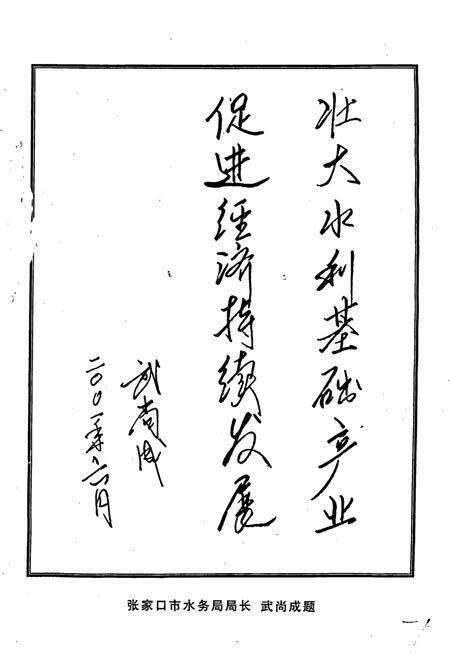 壮大水利基础产业
促进经济持续发展
武尚成
二〇〇一年六月
张家口市水务局局长 武尚成题